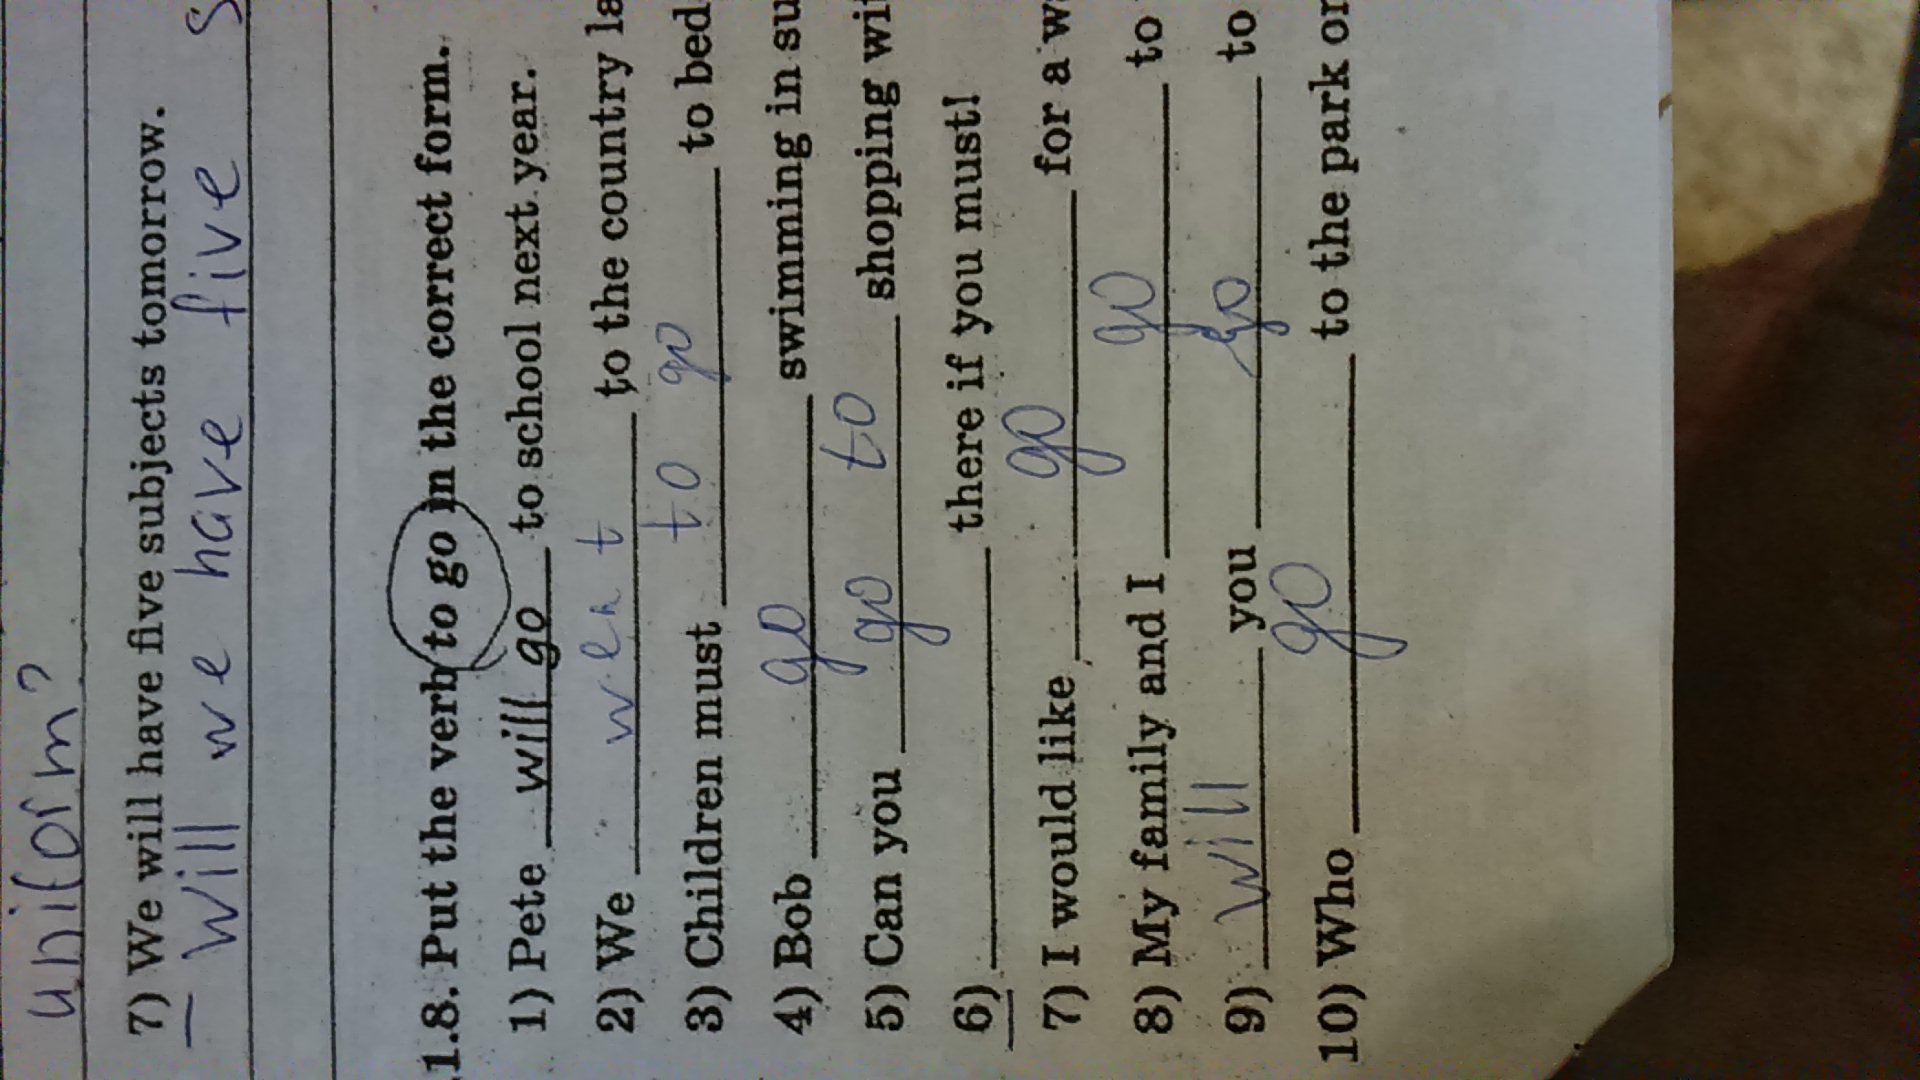 uniform?
7) We will have five subjects tomorrow.
– will we have five s
1.8. Put the verb to go in the correct form.
1) Pete will go to school next year.
2) We went to the country la
3) Children must to go to bed
4) Bob go swimming in su
5) Can you go to shopping wi
6) there if you must!
7) I would like go for a w
8) My family and I go to
9) will you go to
10) Who go to the park or